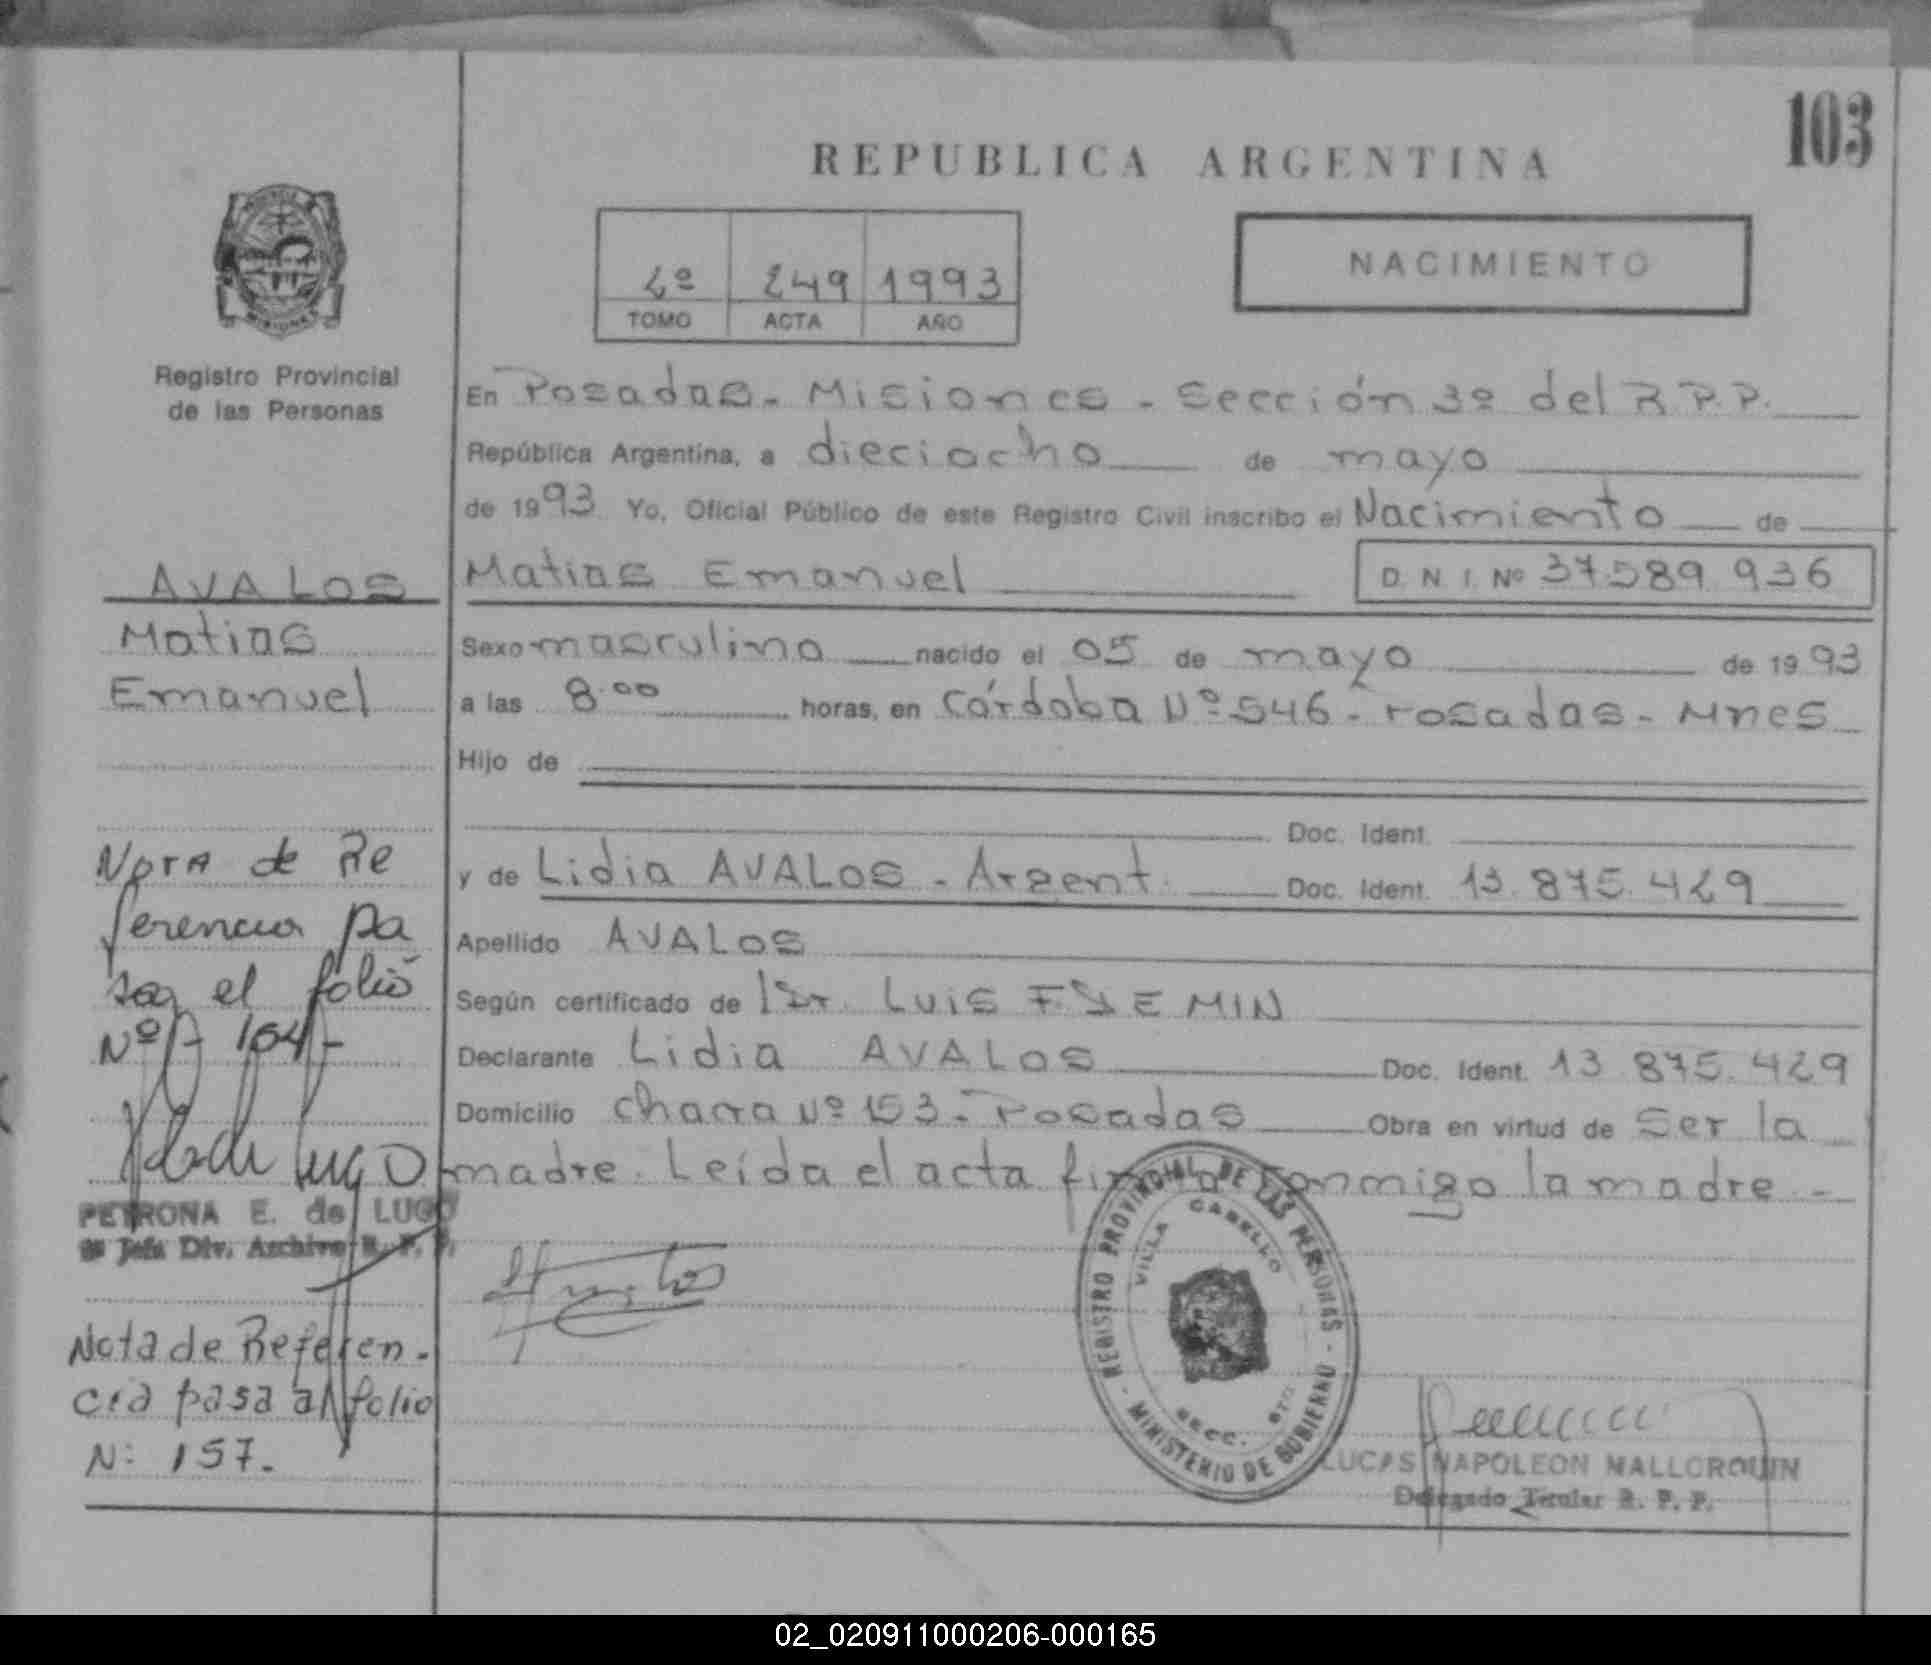 103
REPUBLICA ARGENTINA
2º 249 1993
TOMO ACTA AÑO
NACIMIENTO
Registro Provincial
de las Personas
En Posadas - Misiones - Sección 3º del R.P.P.
República Argentina, a dieciocho de mayo
de 1993 Yo, Oficial Público de este Registro Civil inscribo el Nacimiento de
Matias Emanuel D. N. I. Nº 37.589.936
Sexo masculino nacido el 05 de mayo de 1993
a las 8.00 horas, en Córdoba Nº 546 - Posadas - Mnes
Hijo de
Doc. Ident.
y de Lidia AVALOS - Argent. Doc. Ident. 13.875.429
Apellido AVALOS
Según certificado de Dr. LUIS F. YEMIN
Declarante Lidia AVALOS Doc. Ident. 13.875.429
Domicilio Chacra Nº 153 - Posadas Obra en virtud de ser la
madre. Leída el acta firma conmigo la madre -
AVALOS
Matias
Emanuel
Nota de Re
ferencia pa
sa el folio
Nº 104-
PETRONA E. de LUGO
Jefa Div. Archivo R. P. P.
Nota de Referen-
cia pasa al folio
N: 157.
REGISTRO PROVINCIAL DE LAS PERSONAS - MINISTERIO DE GOBIERNO -
VILLA CABELLO
SECC.
LUCAS NAPOLEON MALLORQUIN
Delegado Titular R. P. P.
02_020911000206-000165